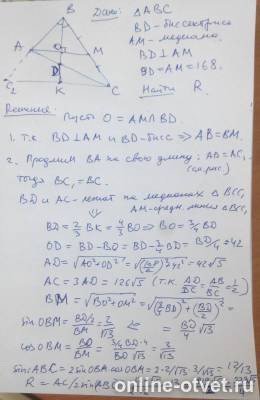 B
Дано: △ABC
BD - биссектриса
AM - медиана.
BD ⊥ AM
BD = AM = 168.
Найти R.
A O M
D
C₂ K C
Решение: Пусть O = AM ∩ BD
1. т.к BD ⊥ AM и BD - бисс ⇒ AB = BM.
2. Продлим BA на свою длину: AB = AC₁
(см рис)
тогда BC₁ = BC.
BD и AC - лежат на медианах △BCC₁
AM - средн. линия △BCC₁
⇓
BD = 2/3 BK = 4/3 BO ⇒ BO = 3/4 BD
OD = BD - BO = BD - 3/4 BD = BD/4 = 42
AD = √(AO² + OD²) = 42√5
AC = 3AD = 126√5 (т.к. AD/DC = AB/BC = 1/2)
BM = √(BO² + OM²) = √((3/4 BD)² + (BD/2)²) =
sin OBM = (BD/2)/BM = 2/√13 ⇐ = BD/4 √13
cos OBM = BO/BM = (3/4 BD·4)/(BD√13) = 3/√13
sin ABC = 2 sin OBM cos OBM = 2·2/√13·3/√13 = 12/13
online-otvet.ru